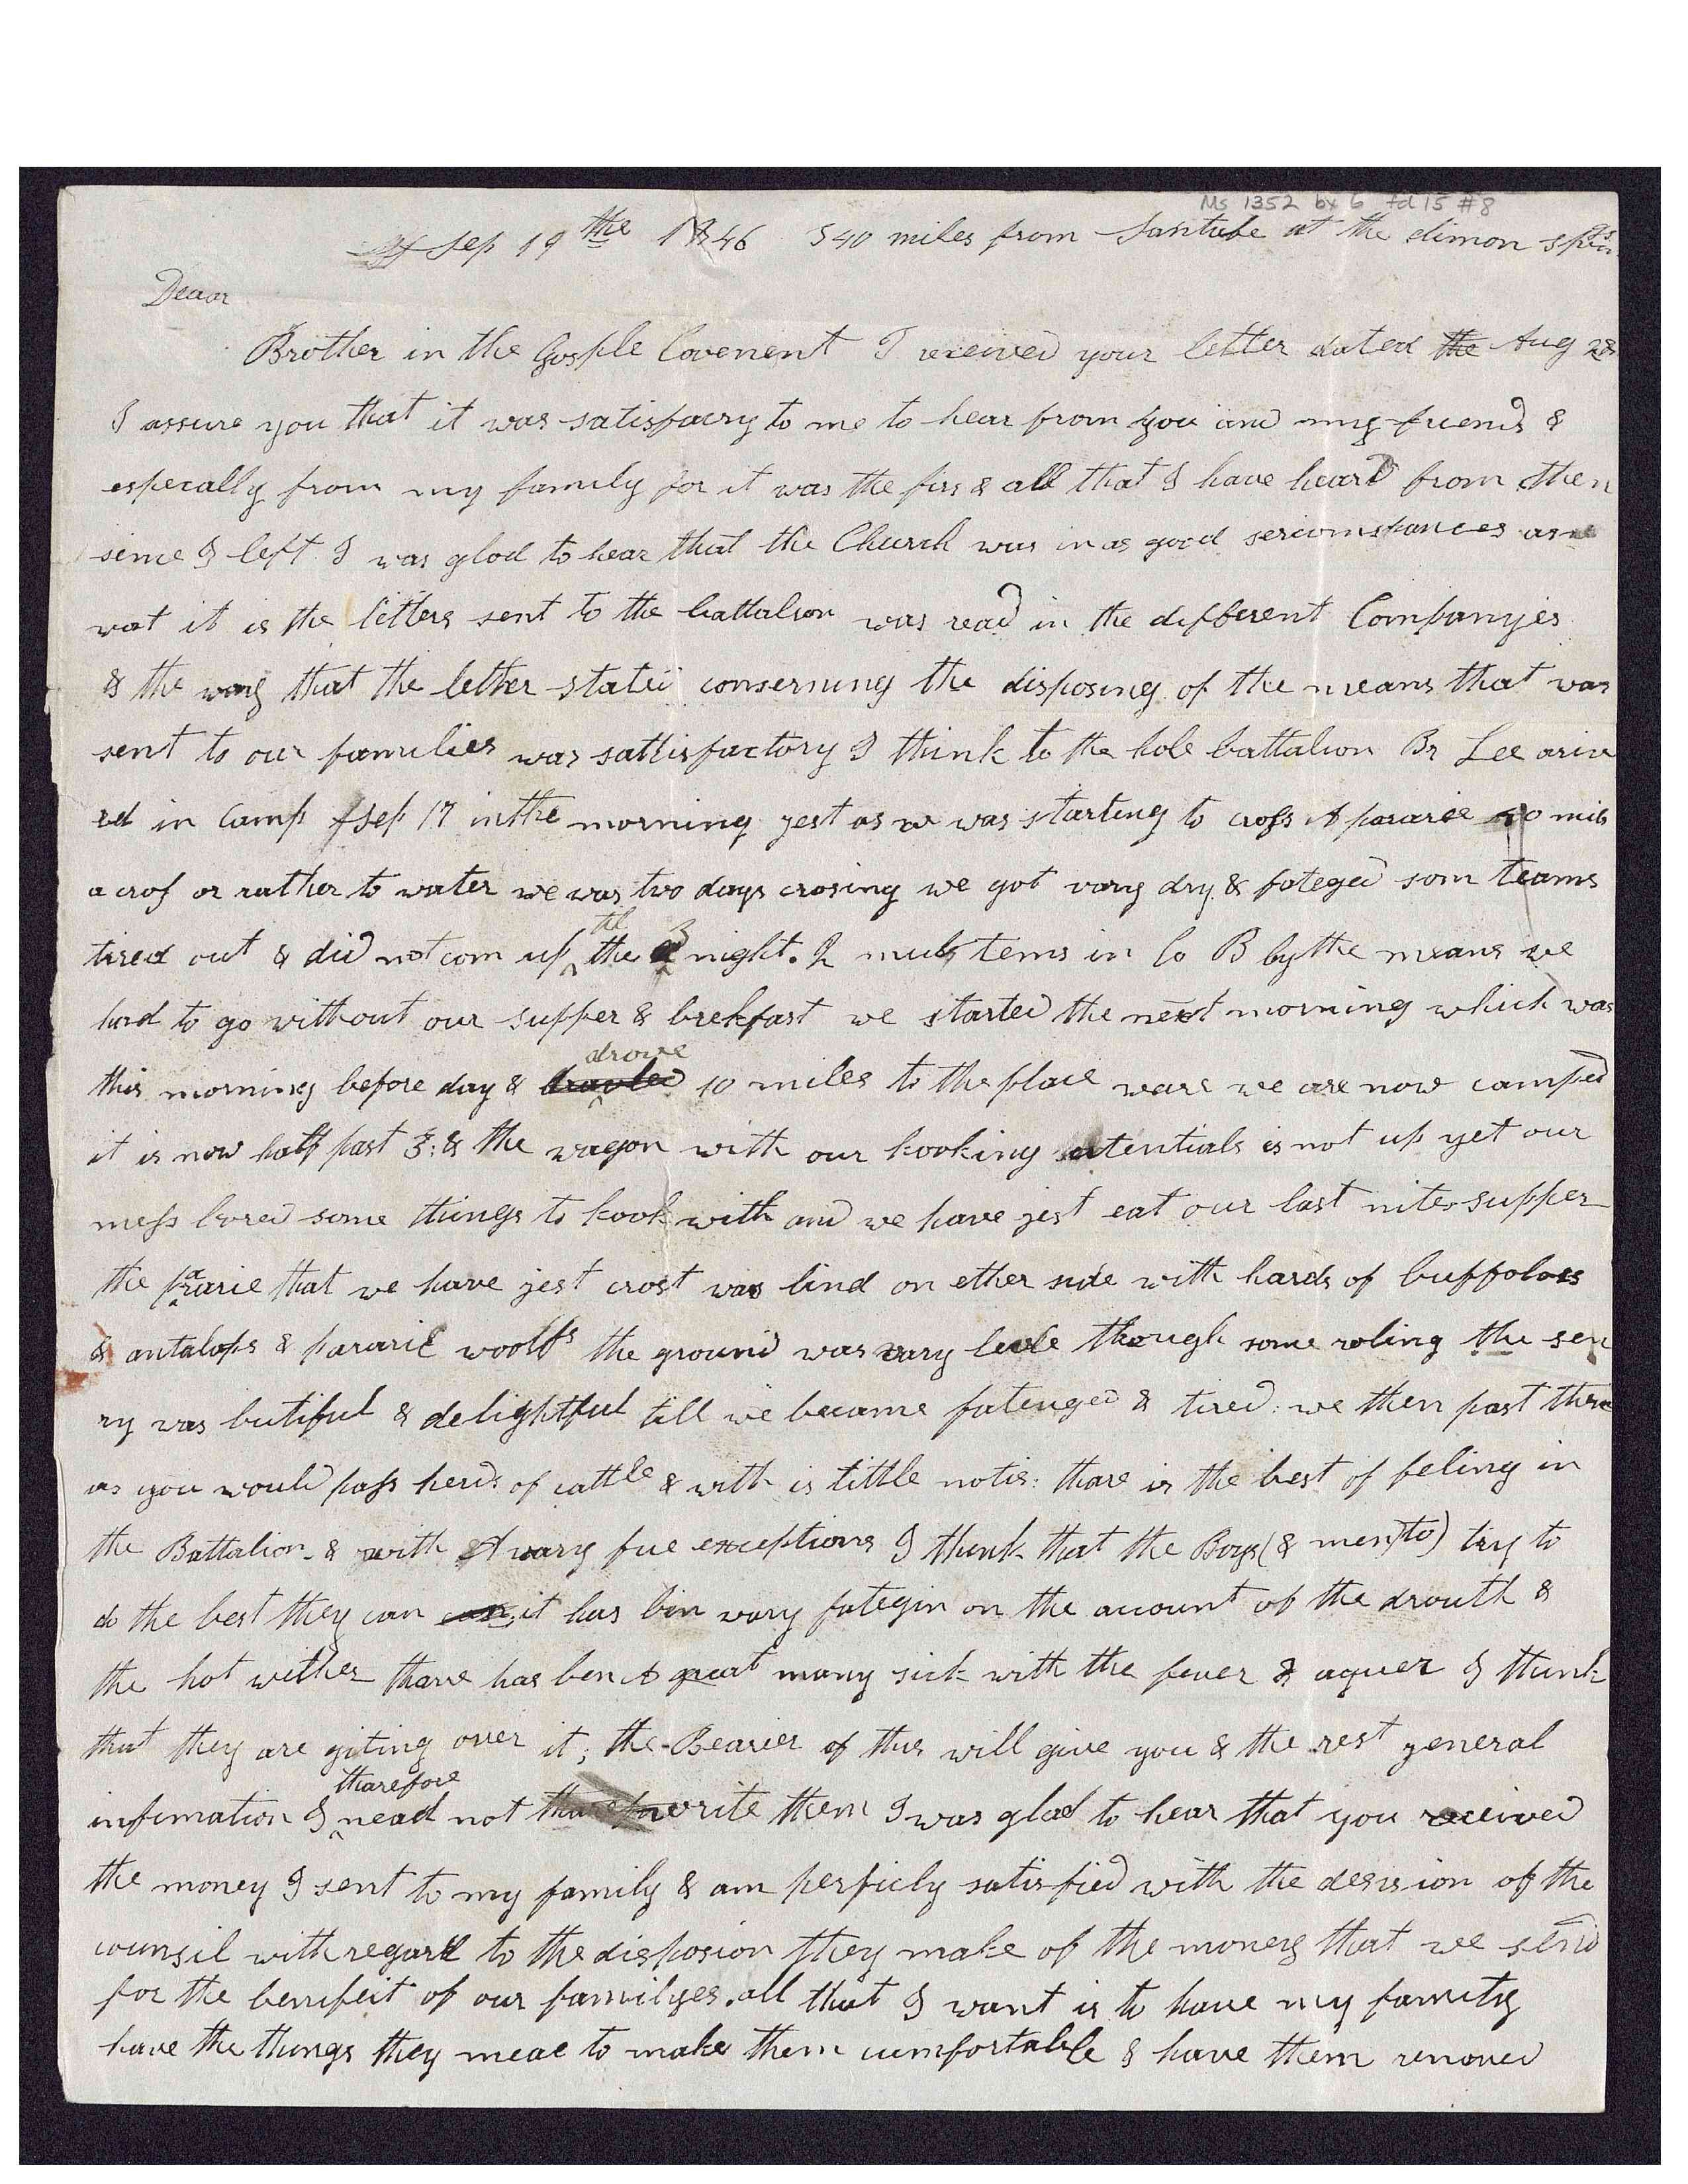 Ms 1352 bx 6 fd 15 #8
Sep 19 the 1846 340 miles from Santafee at the simon
Deaar
Brother in the Gosple Covenent I received your letter dated the Aug 28
I assure you that it was satisfacry to me to hear from you and my friends &
especally from my family for it was the firs & all that I have heard from then
sence I left I was glad to hear that the Church was in as good sercumstances as
wat it is the letters sent to the battalion was read in the different Companyes
& the way that the letter stated conserning the disposing of the means that was
sent to our families was sattisfactory I think to the hole battalion Br Lee ariv
ed in Camp Sep 17 in the morning jest as we was starting to cross A pararie 40 mils
a cros or rather to water we was two days crosing we got vary dry & fateged som teams
tired out & did not com up till the 3 night. 2 tems in Co B by the means we
had to go without our supper & brekfast we started the next morning which was
this morning before day & drove 10 miles to the place ware we are now camped
it is now half past 3: & the wagon with our kooking utentials is not up yet our
mess bored some things to kook with and we have jest eat our last nites supper
the prarie that we have jest crost was lind on ether side with hards of buffoloes
& antalops & pararie woolfs the ground was vary levle though some roling the sen
ry was butiful & delightful till we became fatenged & tired: we then past them
as you would pass herds of cattle & with is little notis: thare is the best of feling in
the Battalion & with A vary fue exceptions I think that the Boys (& men to) try to
do the best they can it has bin vary fategin on the acount of the drouth &
the hot wether thare has ben A great many sick with the fever & aguer I think
that they are giting over it; the Bearier of this will give you & the rest general
infirmation I tharefore nead not write them I was glad to hear that you received
the money I sent to my family & am perficly satisfied with the desision of the
counsil with regard to the disposion they make of the money that we send
for the benifeit of our familyes. all that I want is to have my family
have the things they nead to make them cumfortable & have them removed